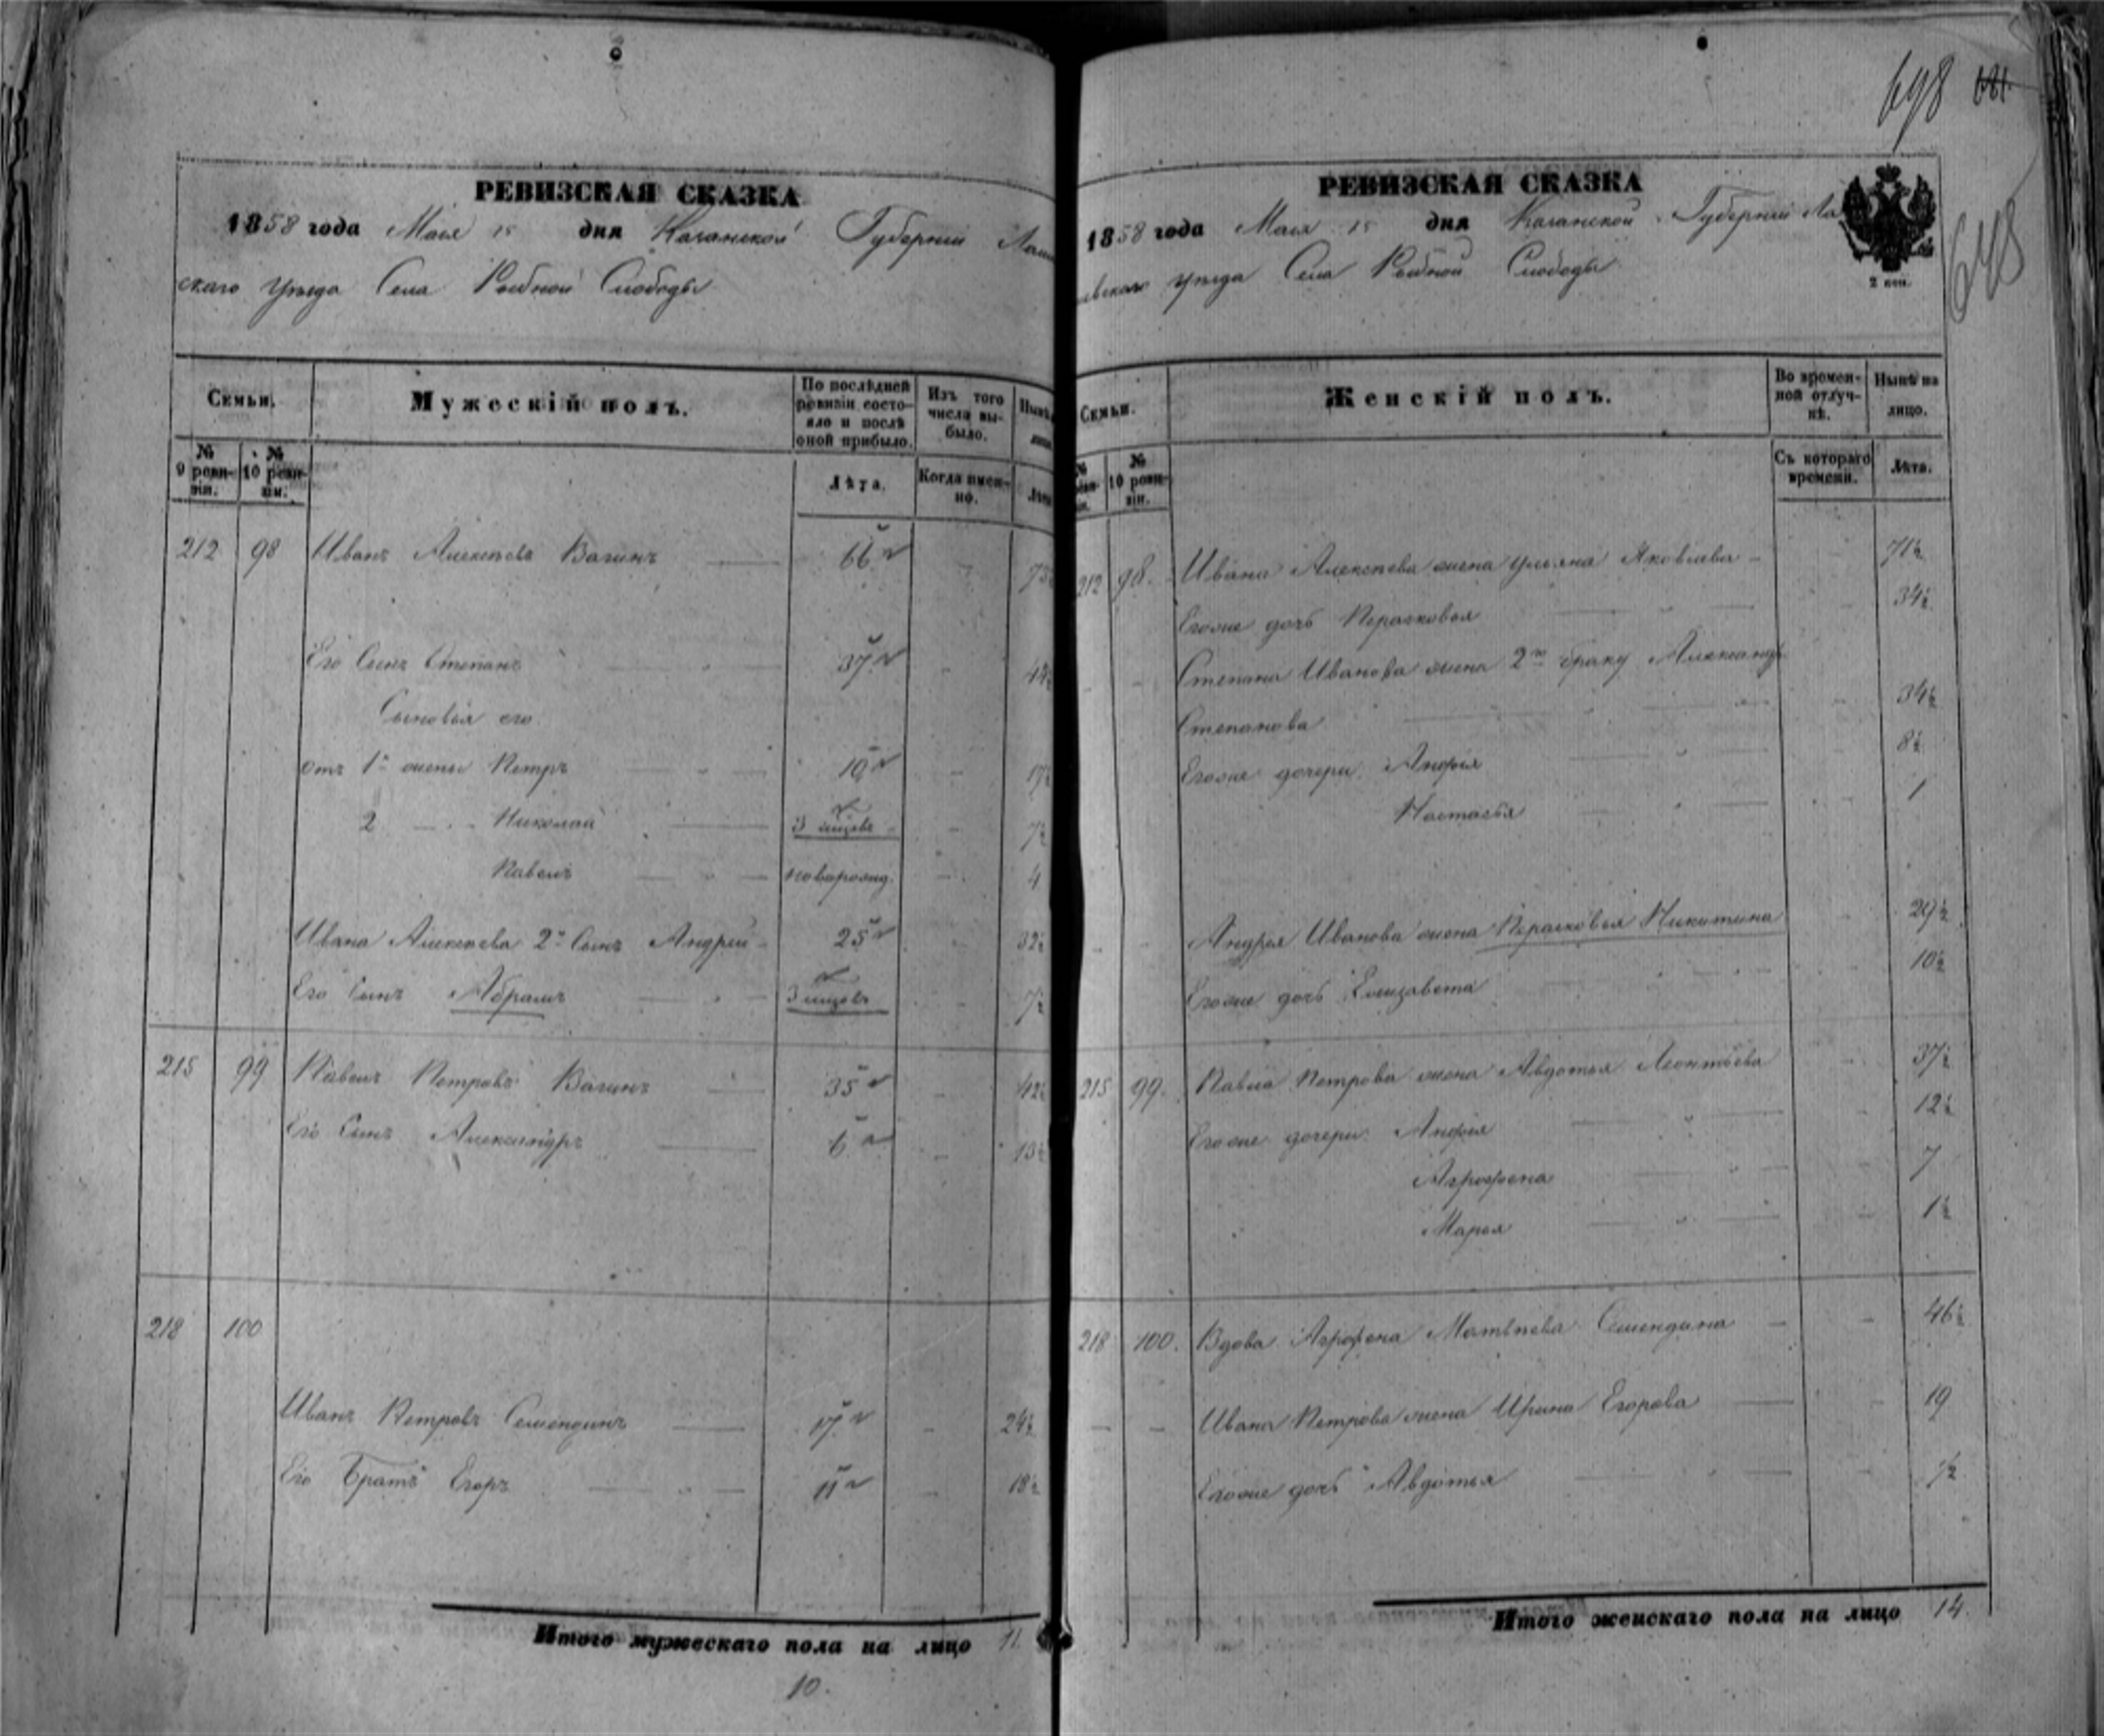 698
РЕВИЗСКАЯ СКАЗКА
1858 года Мая 15 дня Казанской Губерніи Лаи
скаго уѣзда Села Рыбной Слободы
Семьи.
Мужескій полъ.
По послѣдней ревизіи состояло и послѣ оной прибыло.
Изъ того числа выбыло.
Нынѣ
№ 9 ревизіи.
№ 10 ревизіи.
Лѣта.
Когда именно.
Лѣта
212 98 Иванъ Алексѣевъ Вагинъ 66
Его Сынъ Степанъ 37
Сыновья его
отъ 1й жены Петръ 10
2 Николай 3 мѣсяц 7½
Павелъ новорожд. 4
Ивана Алексѣева 2й Сынъ Андрей 25 32½
Его Сынъ Абрамъ 3 мѣсяц 7½
215 99 Павелъ Петровъ Вагинъ 35 42½
Его Сынъ Александръ 6 13½
218 100
Иванъ Петровъ Семендинъ 17 24½
Его Братъ Егоръ 11 18½
Итого мужескаго пола на лицо 11.
10.
РЕВИЗСКАЯ СКАЗКА
1858 года Мая 15 дня Казанской Губерніи Ла
евскаго уѣзда Села Рыбной Слободы
2 коп.
648
Семьи.
Женскій полъ.
Во временной отлучкѣ.
Нынѣ на лицо.
№ 10 ревизіи.
Съ котораго времени.
Лѣта.
212 98. Ивана Алексѣева жена Ульяна Яковлева 71½
Егоже дочь Парасковья 34½
Степана Иванова жена 2го браку Александр
Степанова 34½
Егоже дочери Анфія 8½
Настасья 1
Андрея Иванова жена Парасковья Никитина 29½
Егоже дочь Елизавета 10½
215 99. Павла Петрова жена Авдотья Леонтьева 37½
Егоже дочери Анфія 12½
Аграфена 7
Марья 1½
218 100. Вдова Аграфена Матвѣева Семендина 46½
Ивана Петрова жена Ирина Егорова 19
Егоже дочь Авдотья ½
Итого женскаго пола на лицо 14.